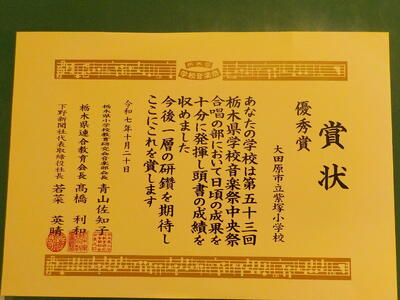 栃木県
学校音楽祭
賞状
優秀賞
大田原市立紫塚小学校
あなたの学校は第五十三回
栃木県学校音楽祭中央祭
合唱の部において日頃の成果を
十分に発揮し頭書の成績を
収めました
今後一層の研鑽を期待し
ここにこれを賞します
令和七年十月二十日
栃木県小学校教育研究会音楽部会長 青山佐知子
栃木県連合教育会長 髙橋利和
下野新聞社代表取締役社長 若菜英晴